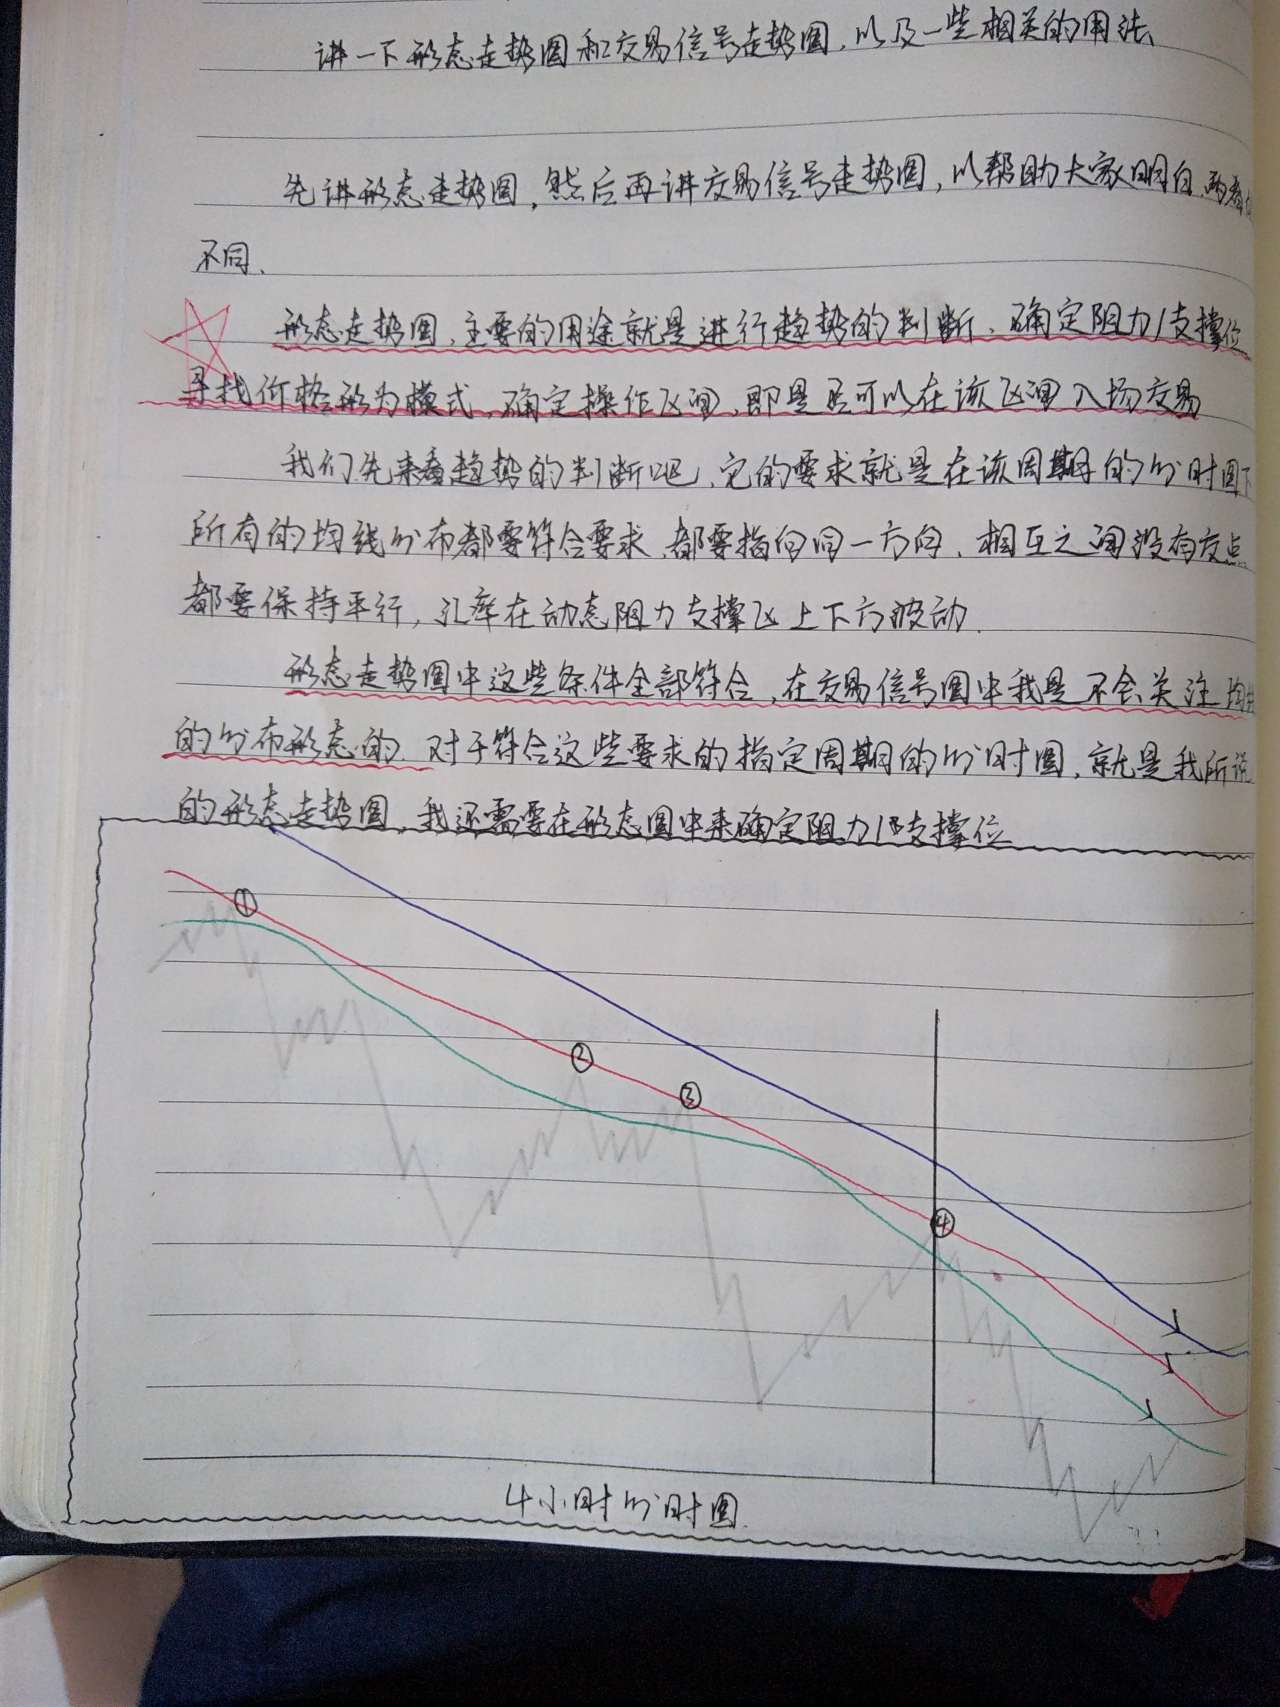 讲一下形态走势图和交易信号走势图，以及一些相关的用法、
先讲形态走势图，然后再讲交易信号走势图，以帮助大家明白、两者
不同、
形态走势图、主要的用途就是进行趋势的判断、确定阻力/支撑位
寻找价格形为模式、确定操作区间、即是否可以在该区间入场交易
我们先来看趋势的判断吧、它的要求就是在该周期的分时图下
所有的均线分布都要符合要求、都要指向同一方向、相互之间没有交点
都要保持平行，汇率在动态阻力支撑区上下方波动．
形态走势图中这些条件全部符合，在交易信号图中我是不会关注均线
的分布形态的．对于符合这些要求的指定周期的分时图，就是我所说
的形态走势图，我还需要在形态图中来确定阻力/支撑位
①
②
③
④
4小时分时图